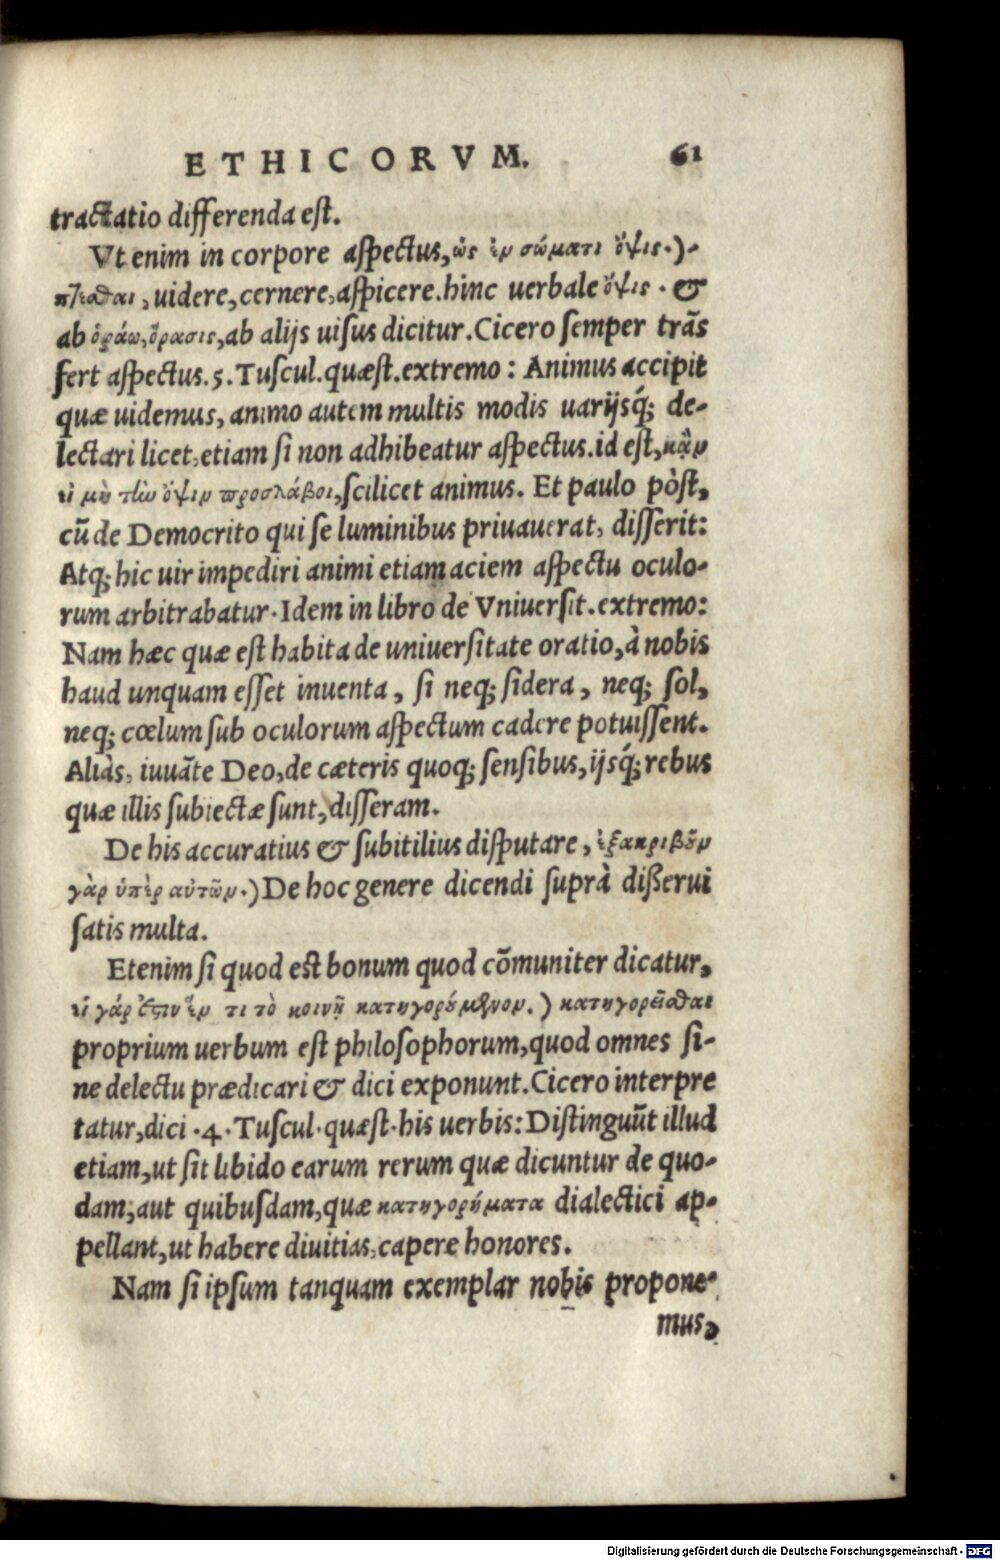 ETHICORVM. 61
tractatio differenda est.
Vt enim in corpore aspectus, ὡς ἐν σώματι ὄψις.)
videre, cernere, aspicere. hinc uerbale ὄψις. &
ab ὁράω, ὅρασις, ab alijs uisus dicitur. Cicero semper trãs
fert aspectus. 5. Tuscul. quæst. extremo: Animus accipit
quæ uidemus, animo autem multis modis uarijsq́; de-
lectari licet, etiam si non adhibeatur aspectus. id est, κἂν
εἰ μὴ τὴν ὄψιν προσλάβοι, scilicet animus. Et paulo pòst,
cũ de Democrito qui se luminibus priuauerat, disserit:
Atq; hic uir impediri animi etiam aciem aspectu oculo-
rum arbitrabatur. Idem in libro de Vniuersit. extremo:
Nam hæc quæ est habita de uniuersitate oratio, à nobis
haud unquam esset inuenta, si neq; sidera, neq; sol,
neq; cœlum sub oculorum aspectum cadere potuissent.
Aliàs, iuuãte Deo, de cæteris quoq; sensibus, ijsq́; rebus
quæ illis subiectæ sunt, disseram.
De his accuratius & subitilius disputare, ἐξακριβοῦν
γὰρ ὑπὲρ αὐτῶν.) De hoc genere dicendi suprà disserui
satis multa.
Etenim si quod est bonum quod cõmuniter dicatur,
εἰ γάρ ἐστιν ἕν τι τὸ κοινῇ κατηγορούμενον.) κατηγορεῖσθαι
proprium uerbum est philosophorum, quod omnes si-
ne delectu prædicari & dici exponunt. Cicero interpre
tatur, dici. 4. Tuscul. quæst. his uerbis: Distinguũt illud
etiam, ut sit libido earum rerum quæ dicuntur de quo-
dam, aut quibusdam, quæ κατηγορήματα dialectici ap-
pellant, ut habere diuitias, capere honores.
Nam si ipsum tanquam exemplar nobis propone-
mus,
Digitalisierung gefördert durch die Deutsche Forschungsgemeinschaft - DFG